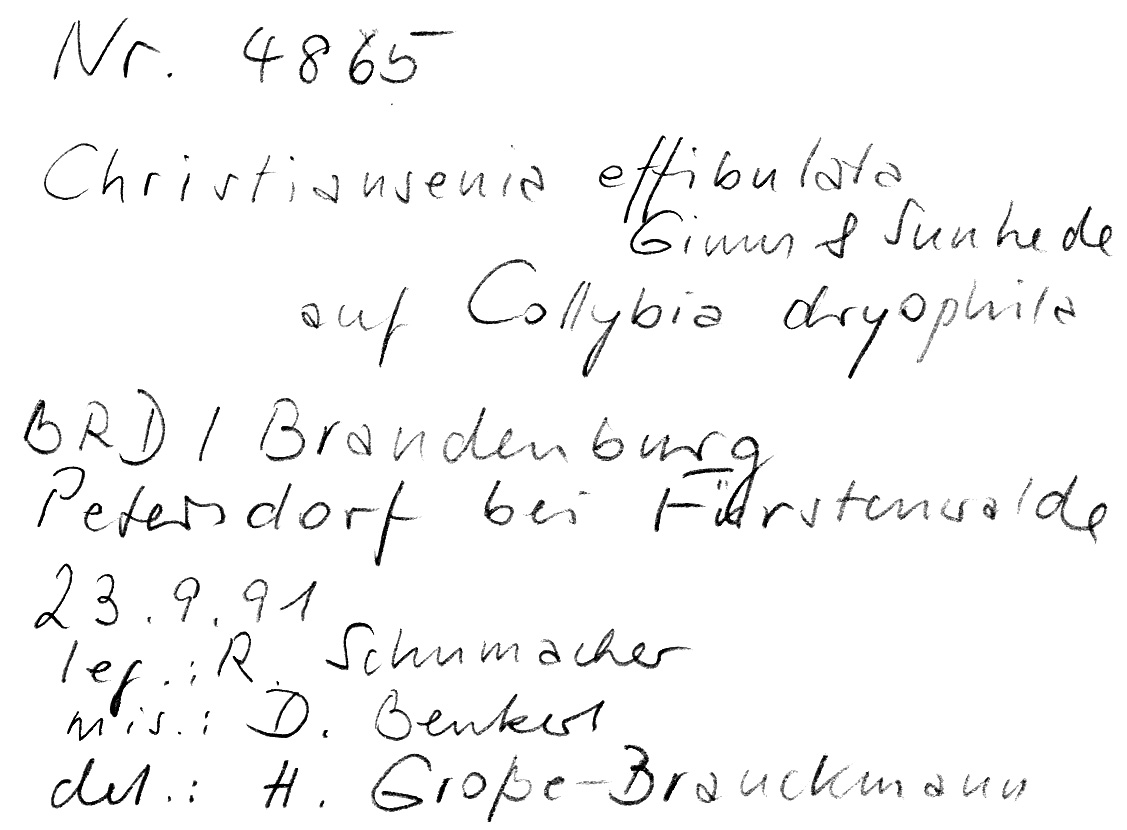 Nr. 4865
Christiansenia effibulata
Ginns & Sunhede
auf Collybia dryophila
BRD / Brandenburg
Petersdorf bei Fürstenwalde
23.9.91
leg.: R. Schumacher
mis.: D. Benkert
det.: H. Große-Brauckmann